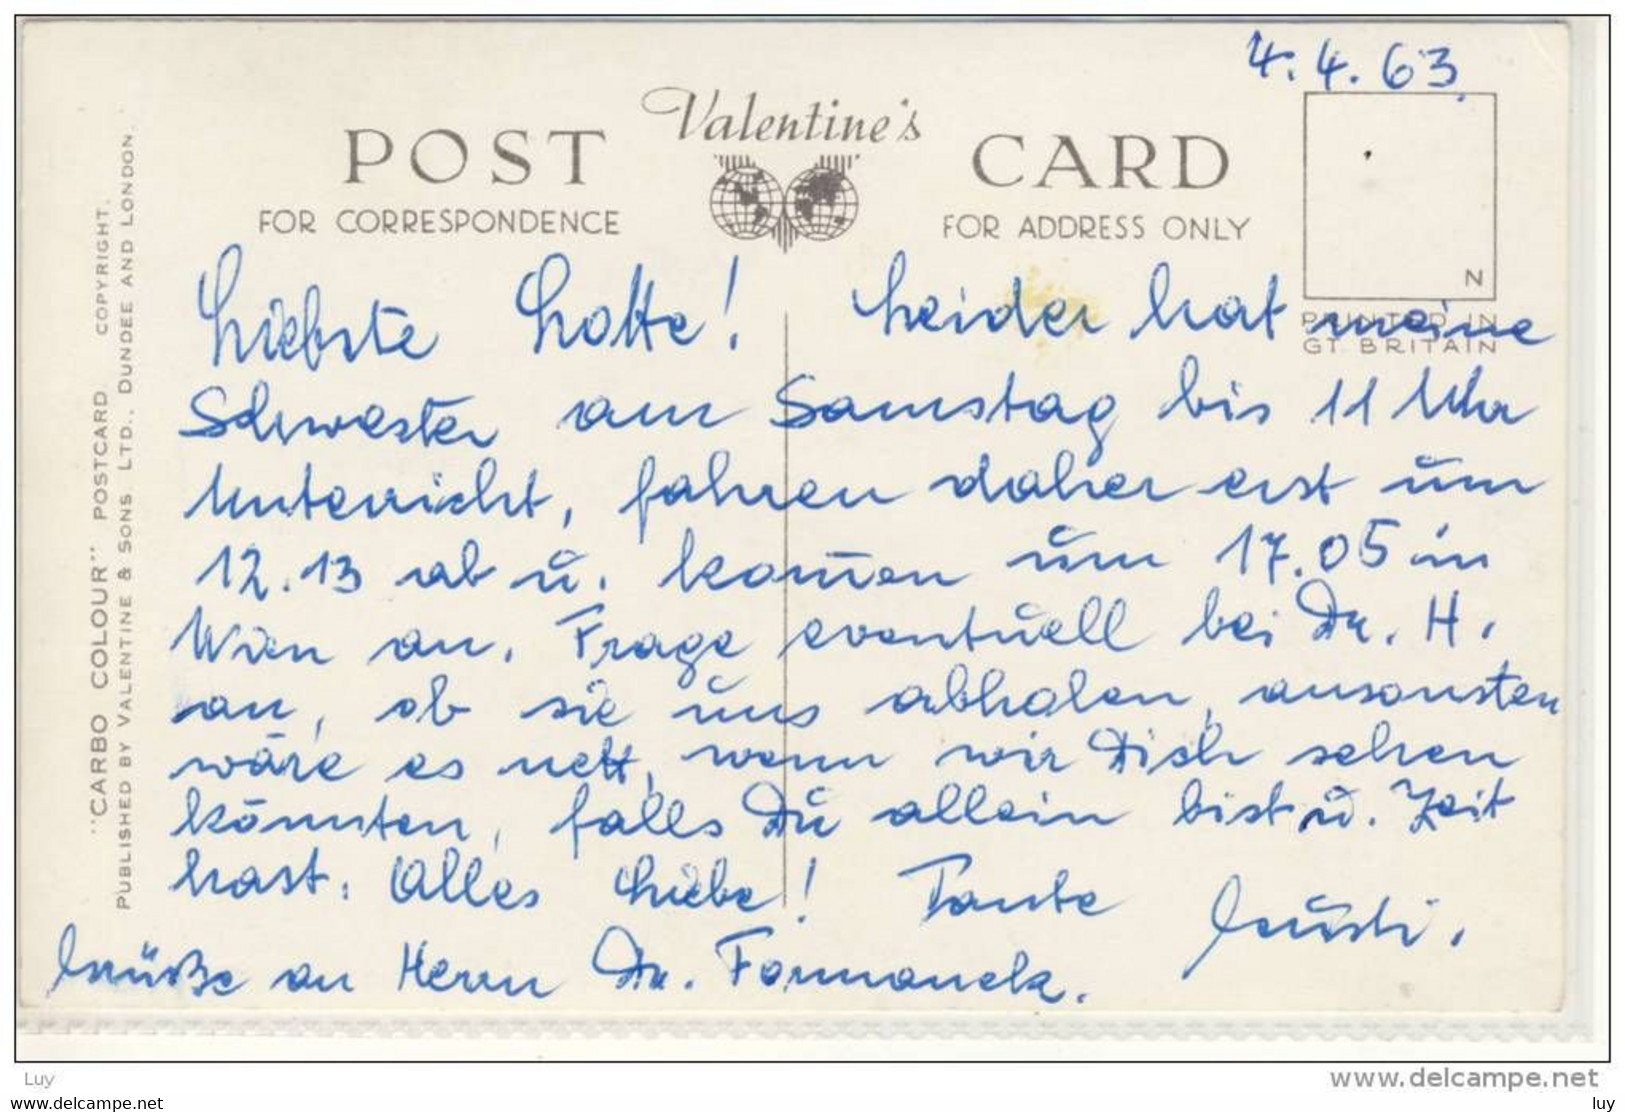 4.4.63
Valentine's
POST CARD
FOR CORRESPONDENCE
FOR ADDRESS ONLY
N
PRINTED IN
GT. BRITAIN
"CARBO COLOUR" POSTCARD. COPYRIGHT.
PUBLISHED BY VALENTINE & SONS LTD., DUNDEE AND LONDON.
Liebste Lotte! Leider hat meine
Schwester am Samstag bis 11 Uhr
Unterricht, fahren daher erst um
12.13 ab u. kom̄en um 17.05 in
Wien an. Frage eventuell bei Dr. H.
an, ob sie uns abholen, ansonsten
wäre es nett, wenn wir Dich sehen
könnten, falls Du allein bist u. Zeit
hast. Alles Liebe! Tante
Grüße an Herrn Dr. Formanek.
Luy
www.delcampe.net
www.delcampe.net
luy